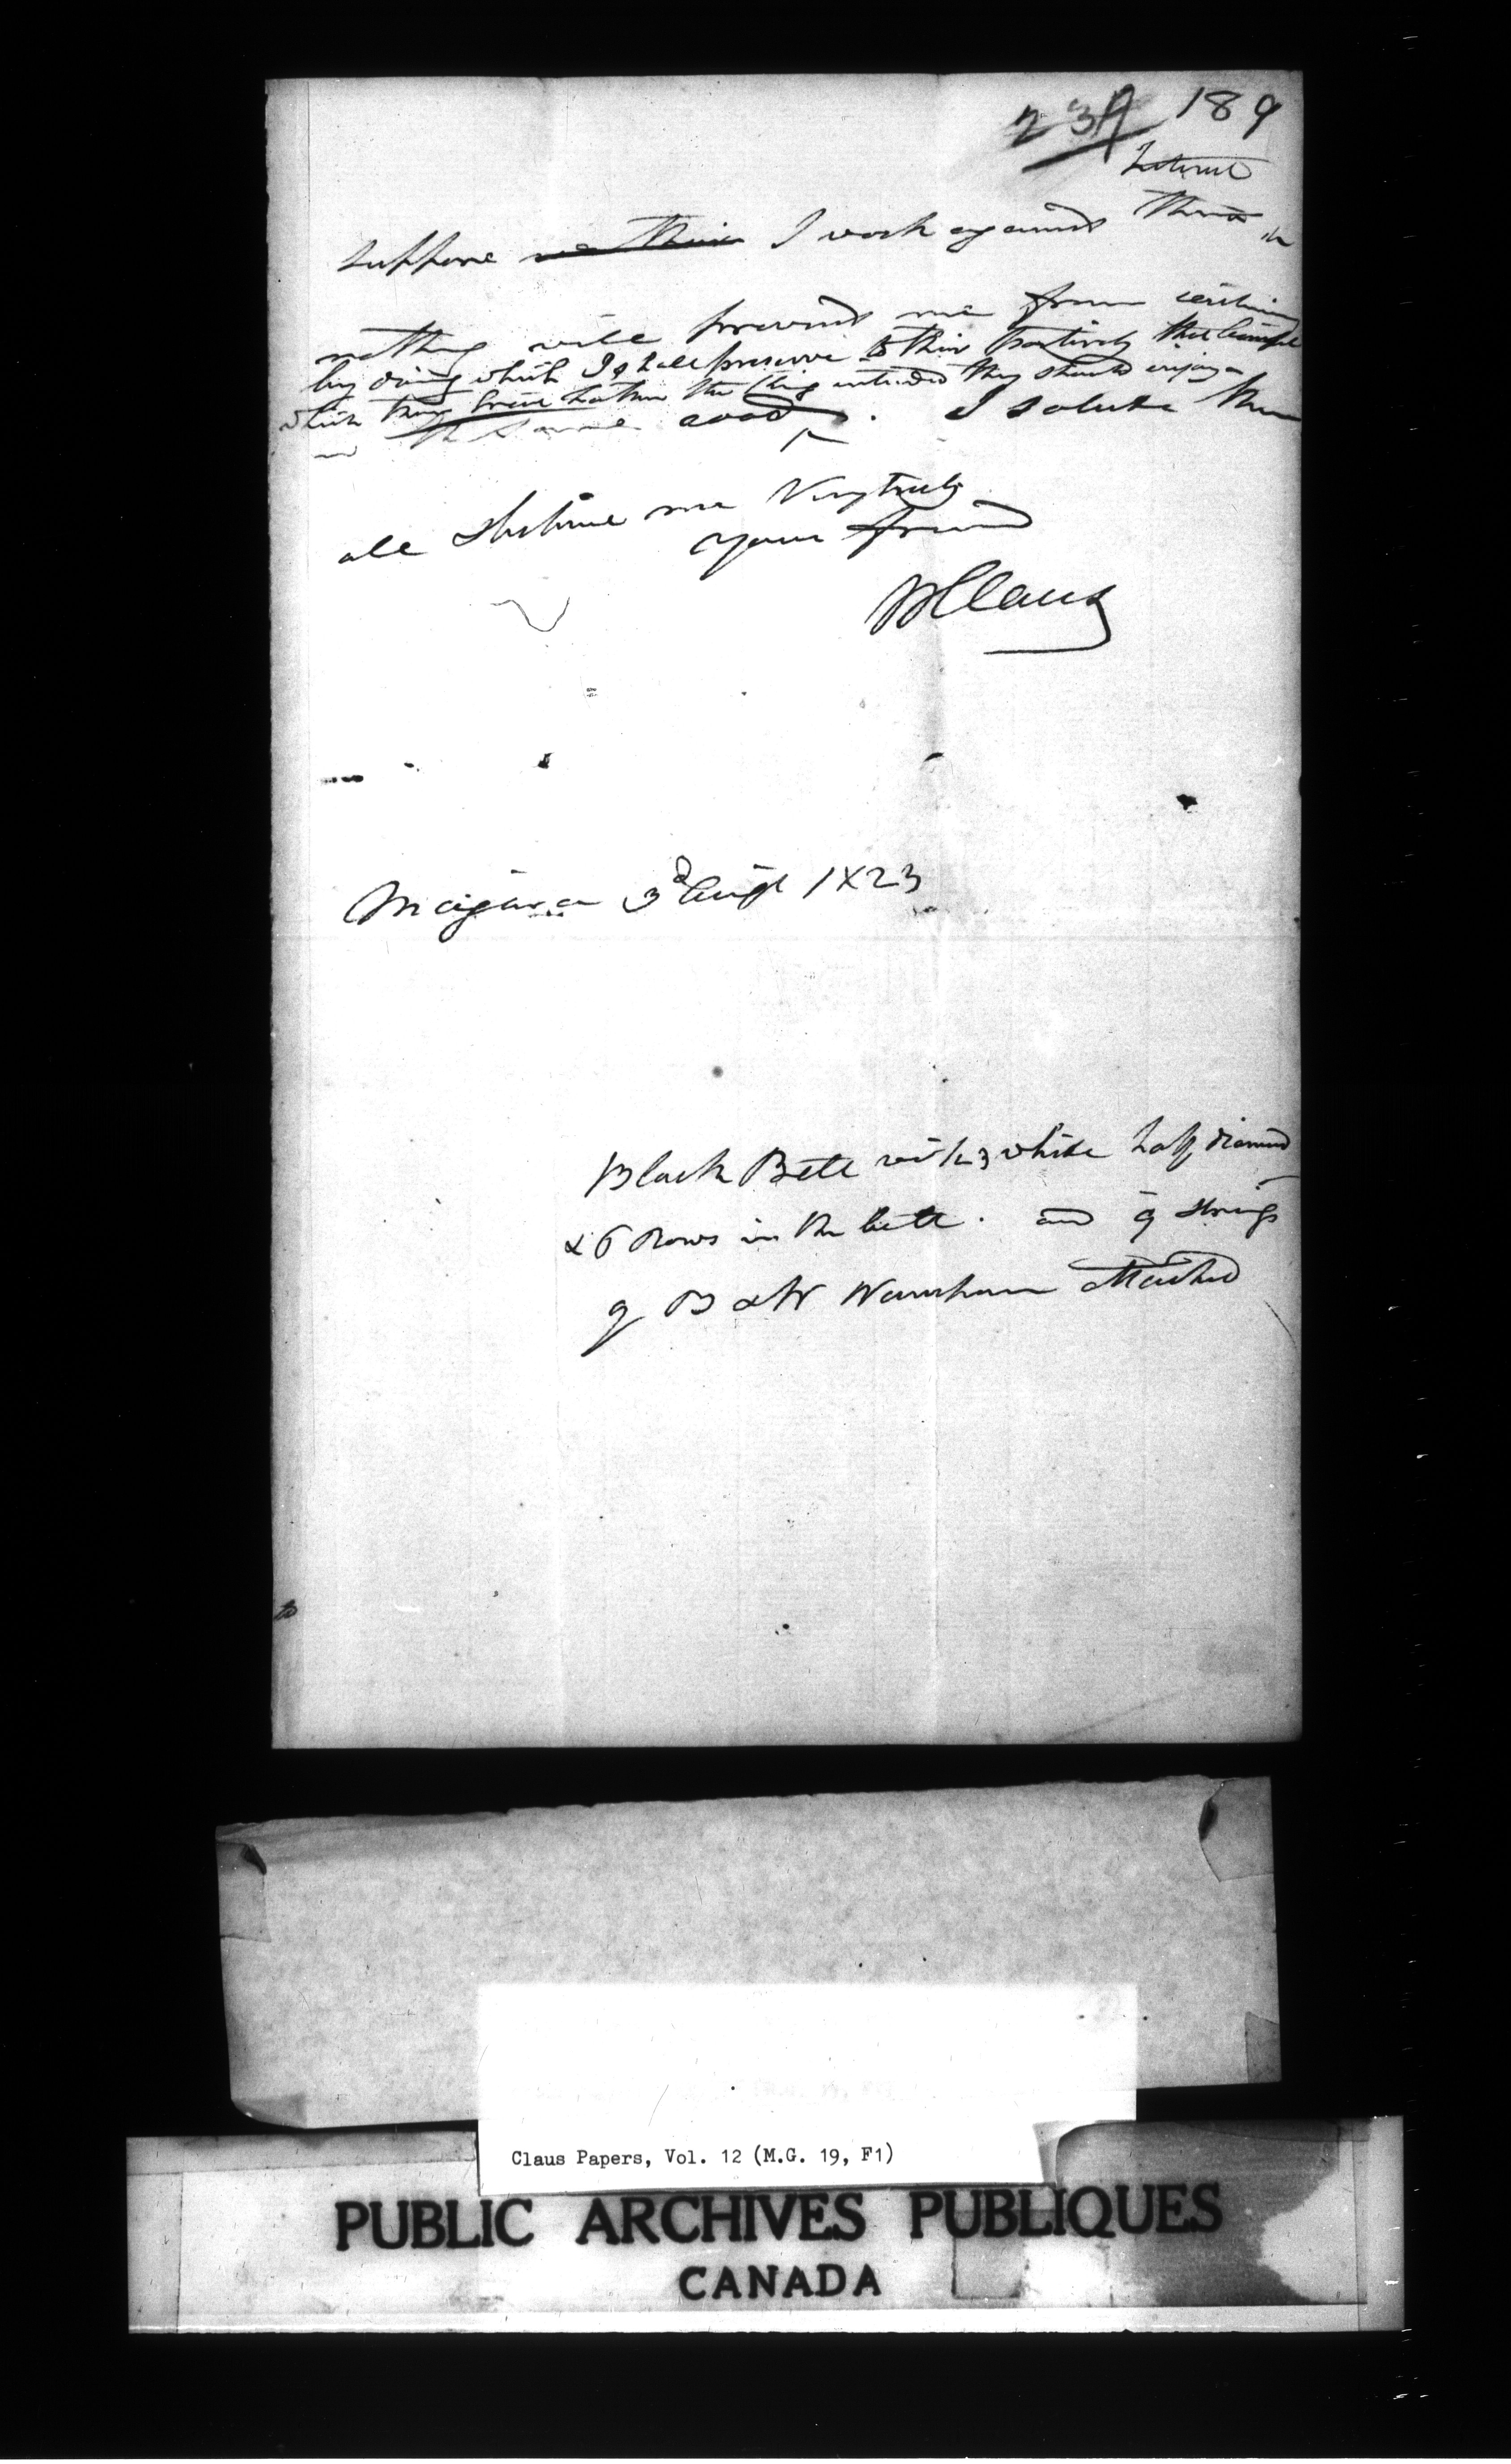 23A 189
Interest
suppose I work against their
nothing will prevent me from
by doing which I shall preserve to their posterity that
which their the King intended they should enjoy
the same good. I salute them
all & believe me Very truly
your friend
WClaus
Niagara 3d Augt 1823
Black Belt with 3 white half diamond
& 6 Rows in the belt. and 9 strings
of B & W Wampum attached
to
Claus Papers, Vol. 12 (M.G. 19, F1)
PUBLIC ARCHIVES PUBLIQUES
CANADA